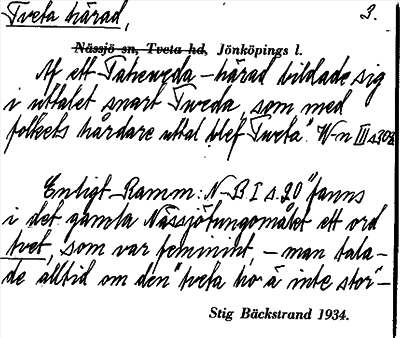 Tveta härad, 3.
Nässjö sn, Tveta hd, Jönköpings l.
Af ett Taheweda-härad bildade sig
i uttalet snart Tweda, som med
folkets hårdare uttal blef Tweta". W-n III s 302
Enligt Ramm: N-B. I s. 20 "fanns
i det gamla Nässjötungomålet ett ord
tvet, som var feminint, - man tala-
de alltid om den "tveta ho ä inte stor" -
Stig Bäckstrand 1934.